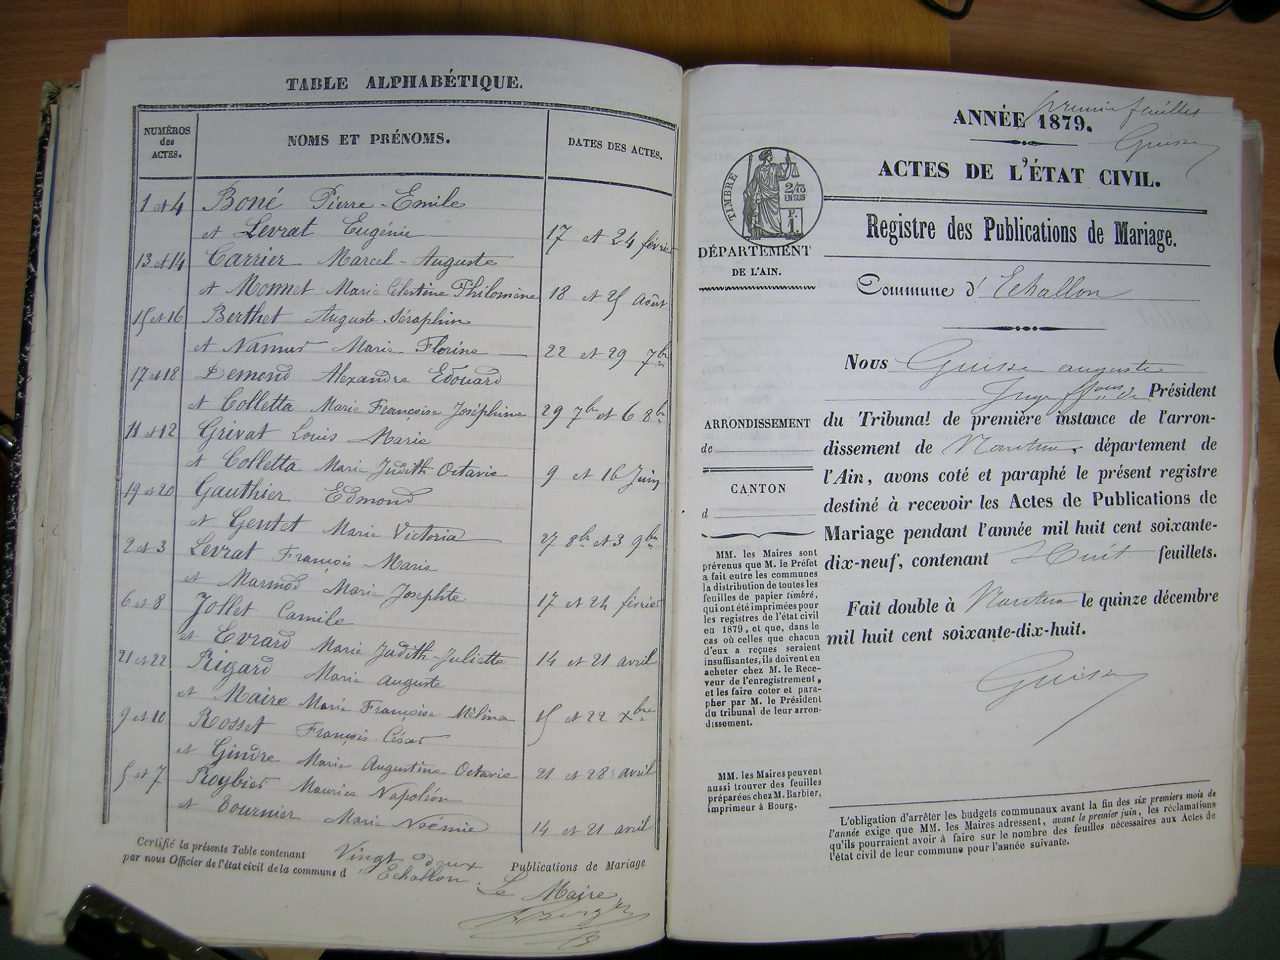 TABLE ALPHABÉTIQUE.
NUMÉROS
des
ACTES.
NOMS ET PRÉNOMS.
DATES DES ACTES.
1 et 4 Boné Pierre-Emile
et Levrat Eugénie 17 et 24 février
13 et 14 Carrier Marcel-Auguste
et Monnet Marie Célestine Philomène 18 et 25 Août
15 et 16 Berthet Auguste Séraphin
et Namus Marie Florine 22 et 29 7bre
17 et 18 Demond Alexandre Edouard
et Colletta Marie Françoise Joséphine 29 7bre et 6 8bre
11 et 12 Grivat Louis Marie
et Colletta Marie Judith Octavie 9 et 16 Juin
19 et 20 Gauthier Edmond
et Gentet Marie Victoria 27 8bre et 3 9bre
2 et 3 Levrat François Marie
et Marmod Marie Josephte 17 et 24 février
6 et 8 Jollet Camile
et Evrard Marie Judith-Juliette 14 et 21 avril
21 et 22 Rigard Marie Auguste
et Maire Marie Françoise Mélina 15 et 22 Xbre
9 et 10 Rosset François César
et Gindre Marie Augustine Octavie 21 et 28 avril
5 et 7 Roybier Maurice Napoléon
et Tournier Marie Noémie 14 et 21 avril
Certifié la présente Table contenant Vingt deux Publications de Mariage
par nous Officier de l'état civil de la commune d Echallon.
Le Maire
premier feuillet
ANNÉE 1879.
Guisse
ACTES DE L'ÉTAT CIVIL.
TIMBRE
2/10
EN SUS
P.
1.
DÉPARTEMENT
DE L'AIN.
Registre des Publications de Mariage.
Commune d'Echallon
ARRONDISSEMENT
de
CANTON
d
MM. les Maires sont
prévenus que M. le Préfet
a fait entre les communes
la distribution de toutes les
feuilles de papier timbré,
qui ont été imprimées pour
les registres de l'état civil
en 1879, et que, dans le
cas où celles que chacun
d'eux a reçues seraient
insuffisantes, ils doivent en
acheter chez M. le Rece-
veur de l'enregistrement,
et les faire coter et para-
pher par M. le Président
du tribunal de leur arron-
dissement.
MM. les Maires peuvent
aussi trouver des feuilles
préparées chez M. Barbier,
imprimeur à Bourg.
Nous Guisse auguste
Juge Président
du Tribunal de première instance de l'arron-
dissement de Nantua, département de
l'Ain, avons coté et paraphé le présent registre
destiné à recevoir les Actes de Publications de
Mariage pendant l'année mil huit cent soixante-
dix-neuf, contenant Huit feuillets.
Fait double à Nantua le quinze décembre
mil huit cent soixante-dix-huit.
Guisse
L'obligation d'arrêter les budgets communaux avant la fin des six premiers mois de
l'année exige que MM. les Maires adressent, avant le premier juin, les réclamations
qu'ils pourraient avoir à faire sur le nombre des feuilles nécessaires aux Actes de
l'état civil de leur commune pour l'année suivante.